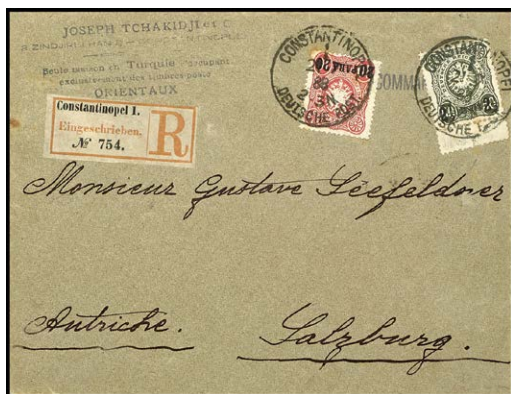 JOSEPH TCHAKIDJI et C
Seule maison en Turquie s'occupant
exclusivement des timbres poste
ORIENTAUX
Constantinopel 1.
Eingeschrieben.
№ 754.
R
CONSTANTINOPEL
DEUTSCHE POST
20 PARA 20
CONSTANTINOPEL
DEUTSCHE
Monsieur Gustave Seefeldner
Autriche.
Salzburg.